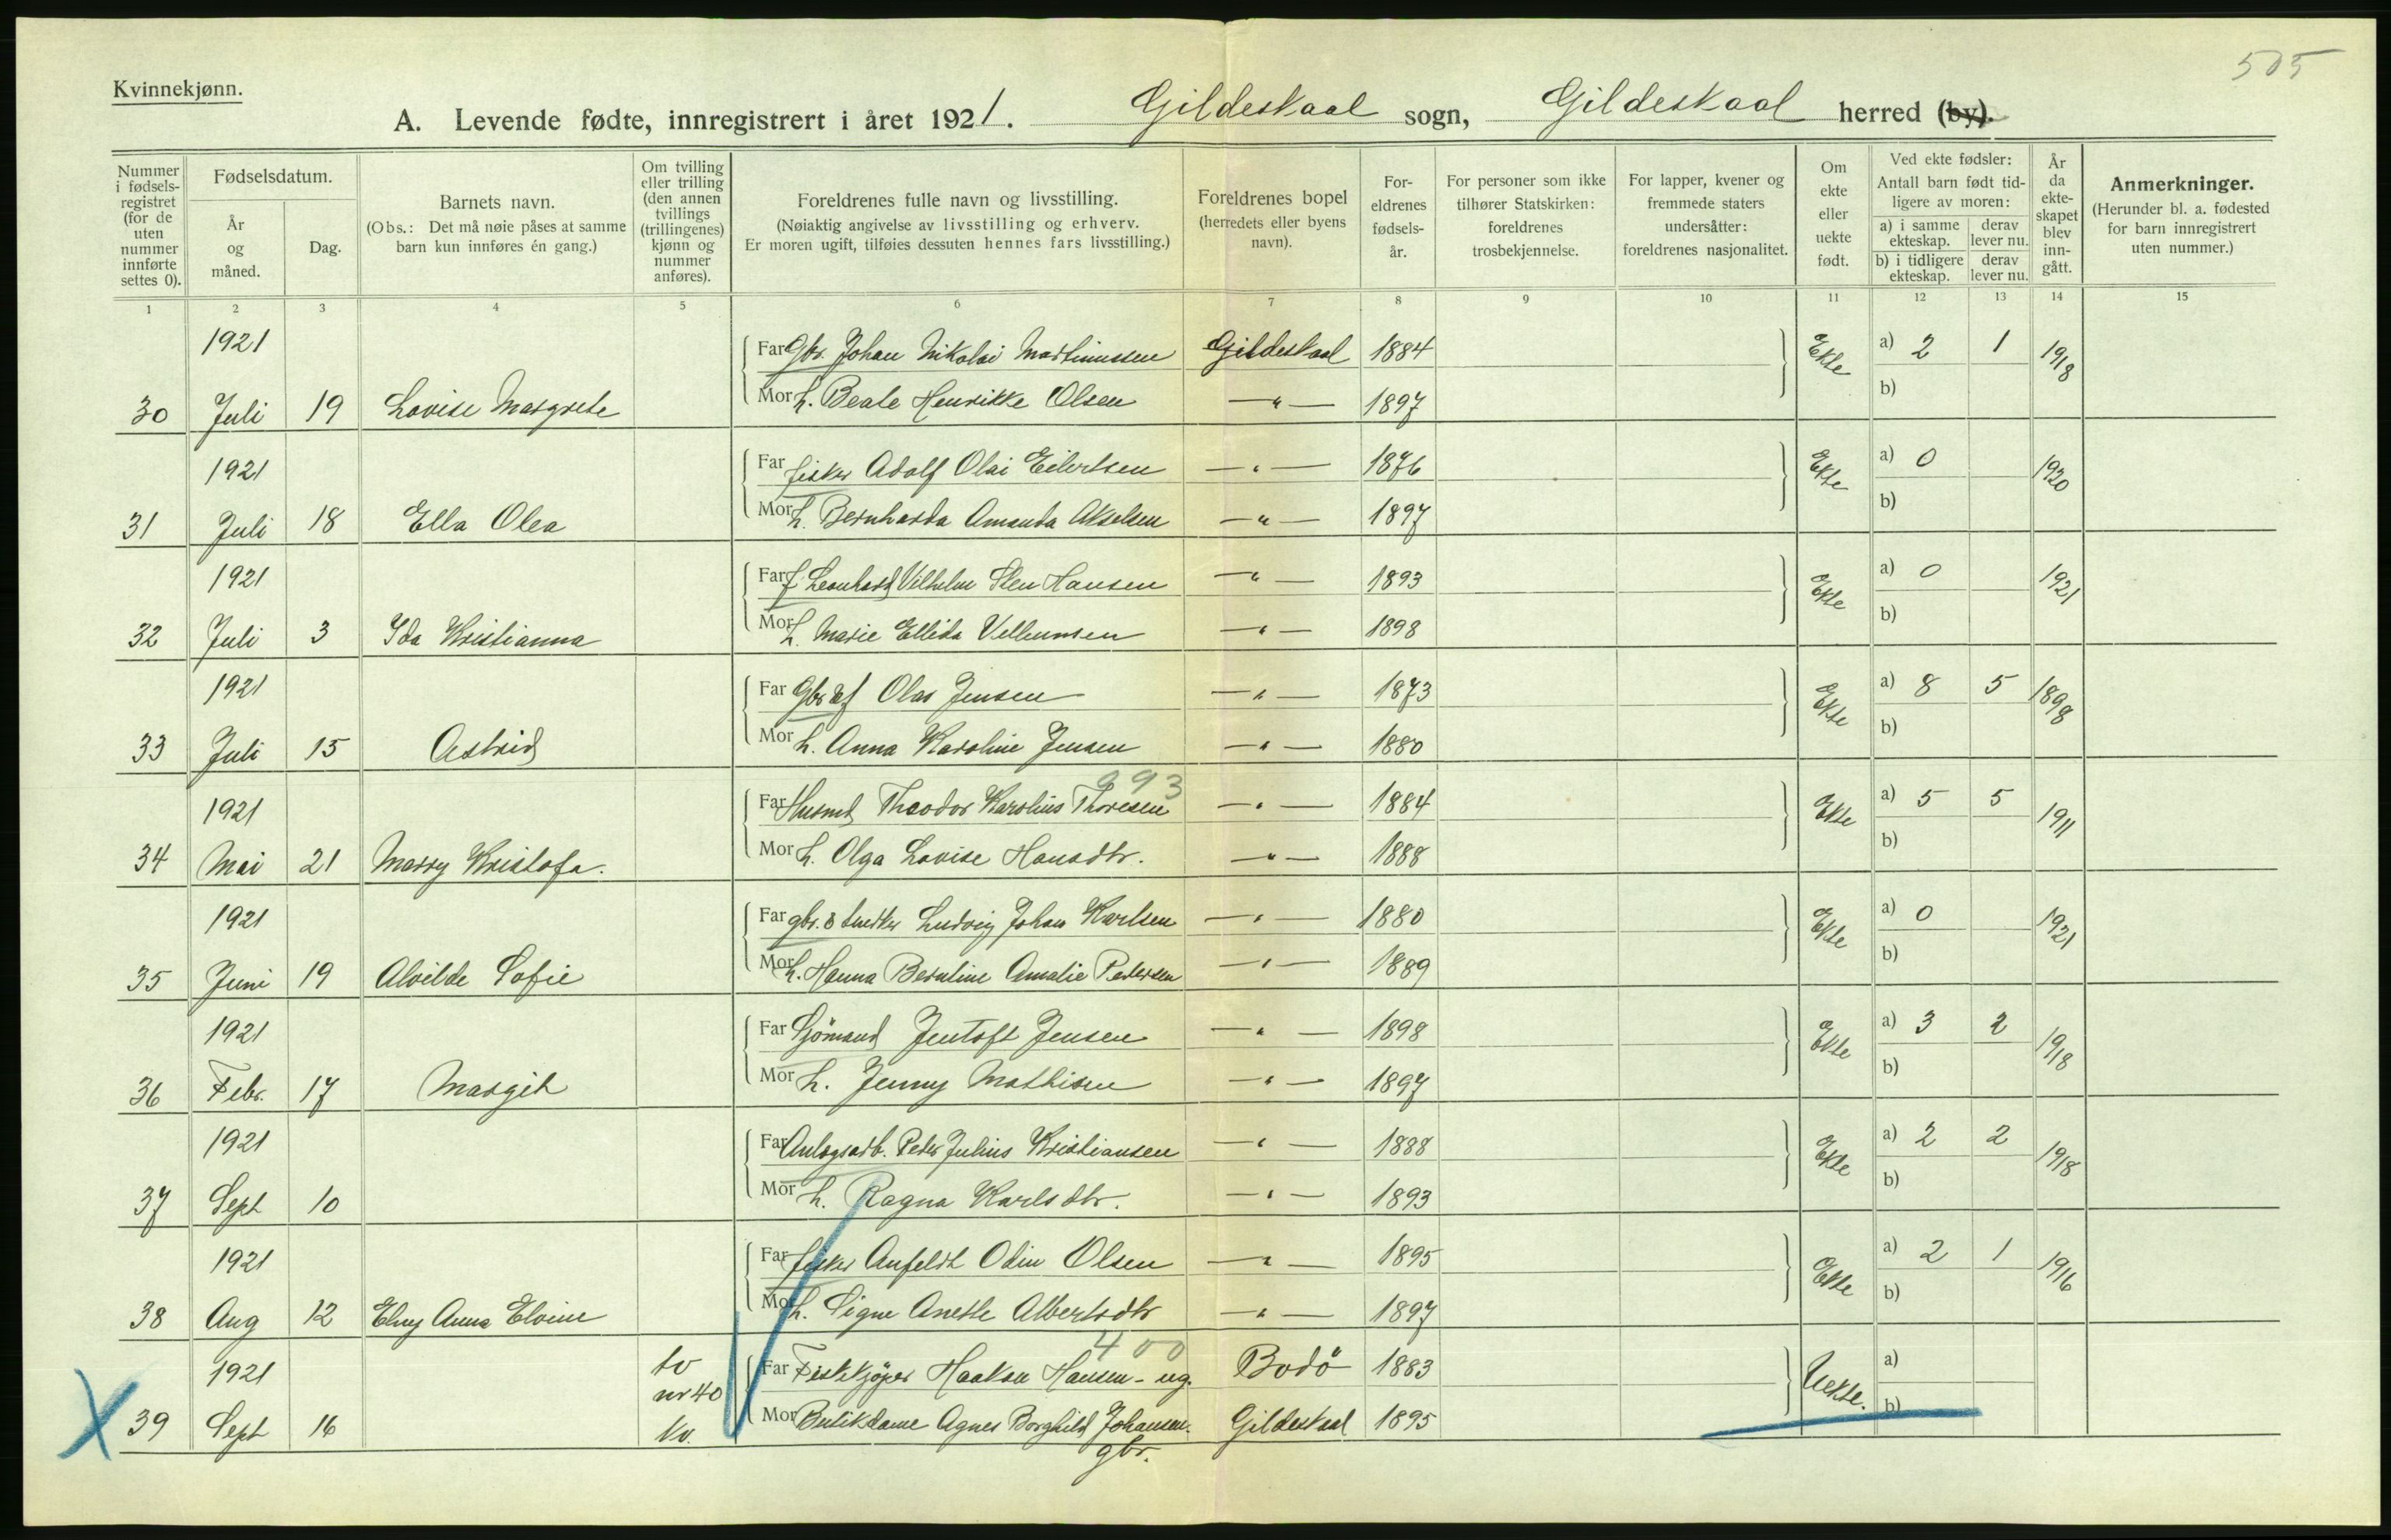 505
Kvinnekjønn.
A. Levende fødte, innregistrert i året 1921. Gildeskaal sogn, Gildeskaal herred (by).
Nummer i fødselsregistret (for de uten nummer innførte settes 0).
Fødselsdatum.
År og måned.
Dag.
Barnets navn.
(Obs.: Det må nøie påses at samme barn kun innføres én gang.)
Om tvilling eller trilling (den annen tvillings (trillingenes) kjønn og nummer anføres).
Foreldrenes fulle navn og livsstilling.
(Nøiaktig angivelse av livsstilling og erhverv.
Er moren ugift, tilføies dessuten hennes fars livsstilling.)
Foreldrenes bopel (herredets eller byens navn).
Foreldrenes fødselsår.
For personer som ikke tilhører Statskirken: foreldrenes trosbekjennelse.
For lapper, kvener og fremmede staters undersåtter: foreldrenes nasjonalitet.
Om ekte eller uekte født.
Ved ekte fødsler: Antall barn født tidligere av moren:
a) i samme ekteskap. derav lever nu.
b) i tidligere ekteskap. derav lever nu.
År da ekteskapet blev inngått.
Anmerkninger.
(Herunder bl. a. fødested for barn innregistrert uten nummer.)
1 2 3 4 5 6 7 8 9 10 11 12 13 14 15
1921 Far Gbr. Johan Nikolai Martinussen Gildeskaal 1884 Ekte a) 2 1 1918
30 Juli 19 Lovise Margrete Mor h. Beate Henrikke Olsen —"— 1897 b)
1921 Far fisker Adolf Olai Eilertsen —"— 1876 Ekte a) 0 1920
31 Juli 18 Ella Olea Mor h. Bernharda Amanda Akselsen —"— 1897 b)
1921 Far f Leonhard Vilhelm Sten Hansen —"— 1893 Ekte a) 0 1921
32 Juli 3 Ida Kristianna Mor h. Marie Ellida Vellumsen —"— 1898 b)
1921 Far Gbr & f Olas Jensen —"— 1873 Ekte a) 8 5 1898
33 Juli 15 Astrid Mor h. Anna Karoline Jensen —"— 1880 b)
993
1921 Far Husmd Theodor Karolius Thoresen —"— 1884 Ekte a) 5 5 1911
34 Mai 21 Marry Kristofa. Mor h. Olga Lovise Hansdtr. —"— 1888 b)
1921 Far gbr. & snedker Ludvig Johan Karlsen —"— 1880 Ekte a) 0 1921
35 Juni 19 Alvilde Sofie Mor h. Hanna Berntine Amalie Pedersen —"— 1889 b)
1921 Far Sjömand Jentoft Jensen —"— 1898 Ekte a) 3 2 1918
36 Febr. 17 Margit Mor h. Jenny Mathisen —"— 1897 b)
1921 Far Anlægsarb. Peder Julius Kristiansen —"— 1888 Ekte a) 2 2 1918
37 Sept 10 Mor h. Ragna Karlsdtr. —"— 1893 b)
1921 Far fisker Anfeldt Odin Olsen —"— 1895 Ekte a) 2 1 1916
38 Aug 12 Elny Anna Elvine Mor h. Signe Anette Albertsdtr —"— 1897 b)
400
1921 tv nr 40 kv. Far Fiskekjöper Haakon Hansen - ug. Bodö 1883 Uekte. a)
X 39 Sept 16 Mor Butikdame Agnes Borghild Johansen. Gildeskaal 1895 b)
gbr.